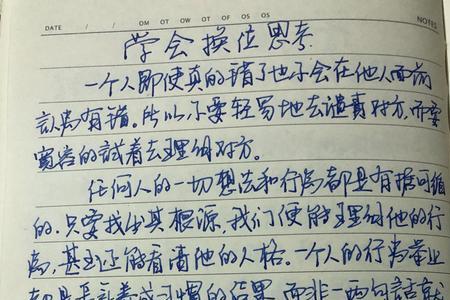 DATE / / MO TU WE TH FR SA SU NOTES
学会换位思考
一个人即使真的错了也不会在他人面前
认为有错。所以不要轻易地去谴责对方,而要
宽容的试着去理解对方。
任何人的一切想法和行为都是有据可循
的。只要找出其根源,我们便能理解他的行
为,甚至还能看清他的人格。一个人的行为举止
都是长期养成习惯的结果,而非一两句话就